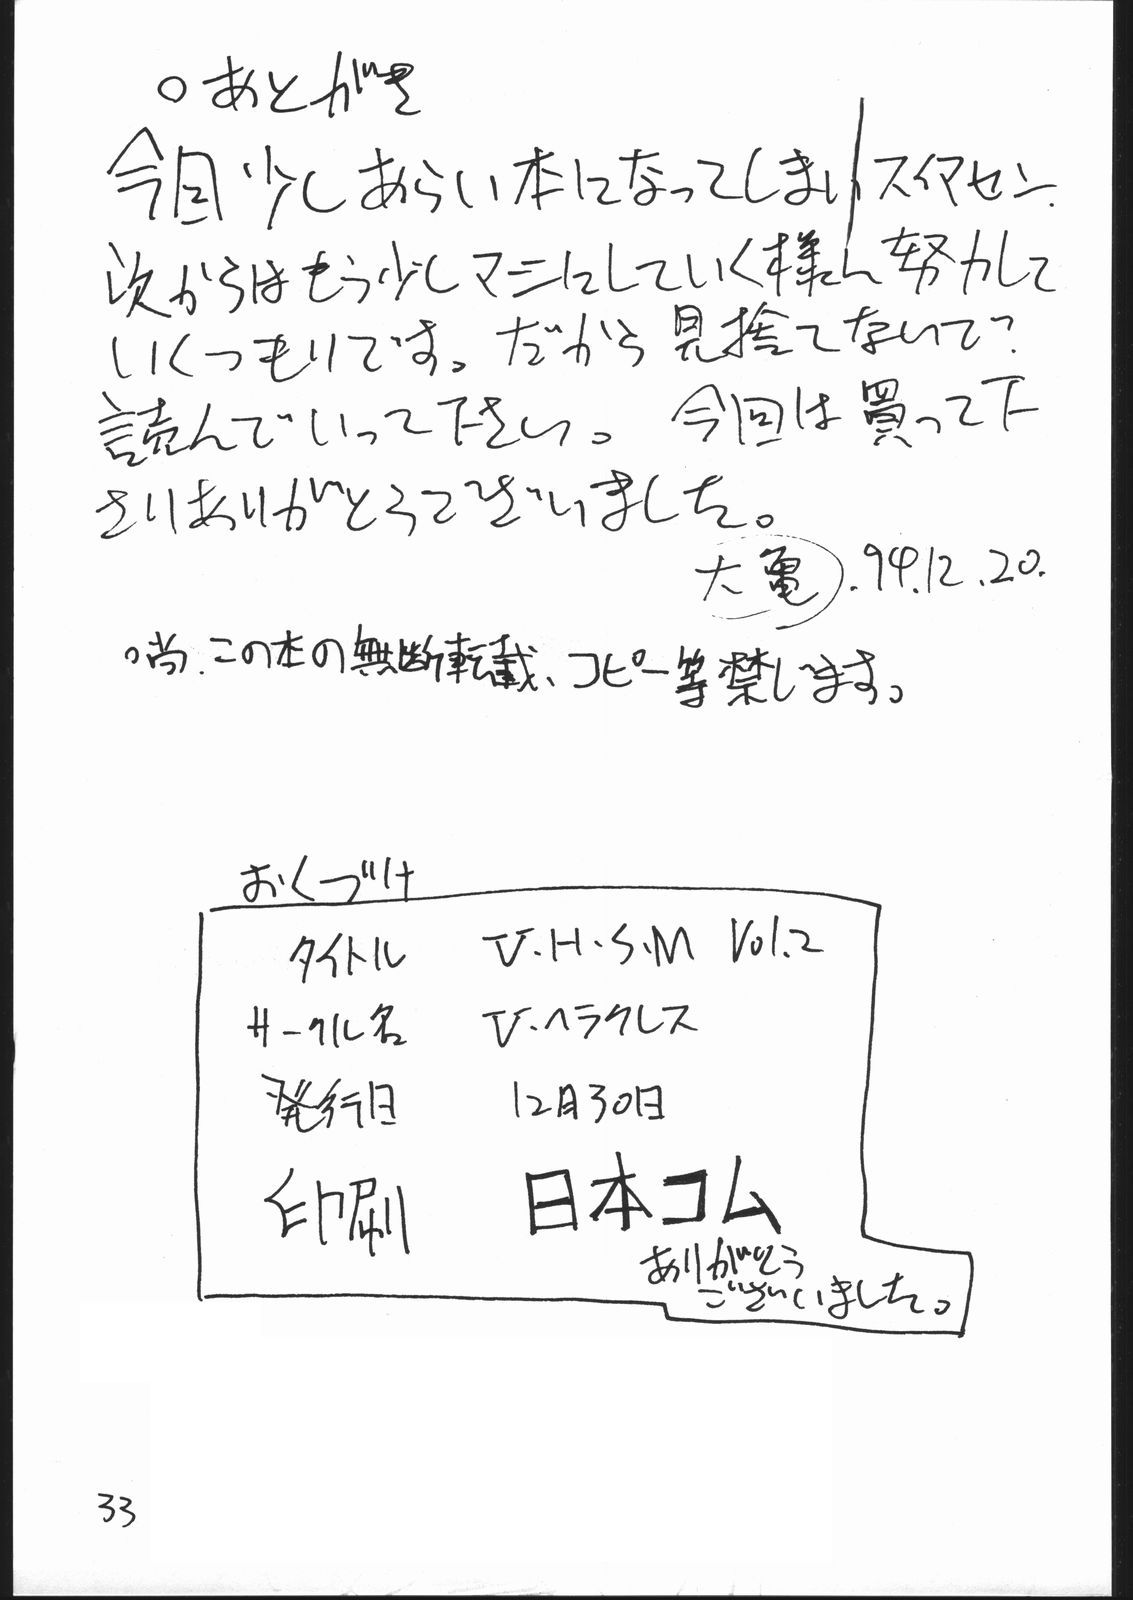 ○あとがき
今回少しあらい本になってしまいスイマセン.
次からはもう少しマシにしていく様に努力して
いくつもりです。だから見捨てないで?
読んでいって下さい。 今回は買って下
さりありがとうございました。
大亀.94.12.20.
○尚.この本の無断転載、コピー等禁じます。
おくづけ
タイトル V・H・S・M Vol.2
サークル名 V・ヘラクレス
発行日 12月30日
印刷 日本コム
ありがとう
ございました。
33